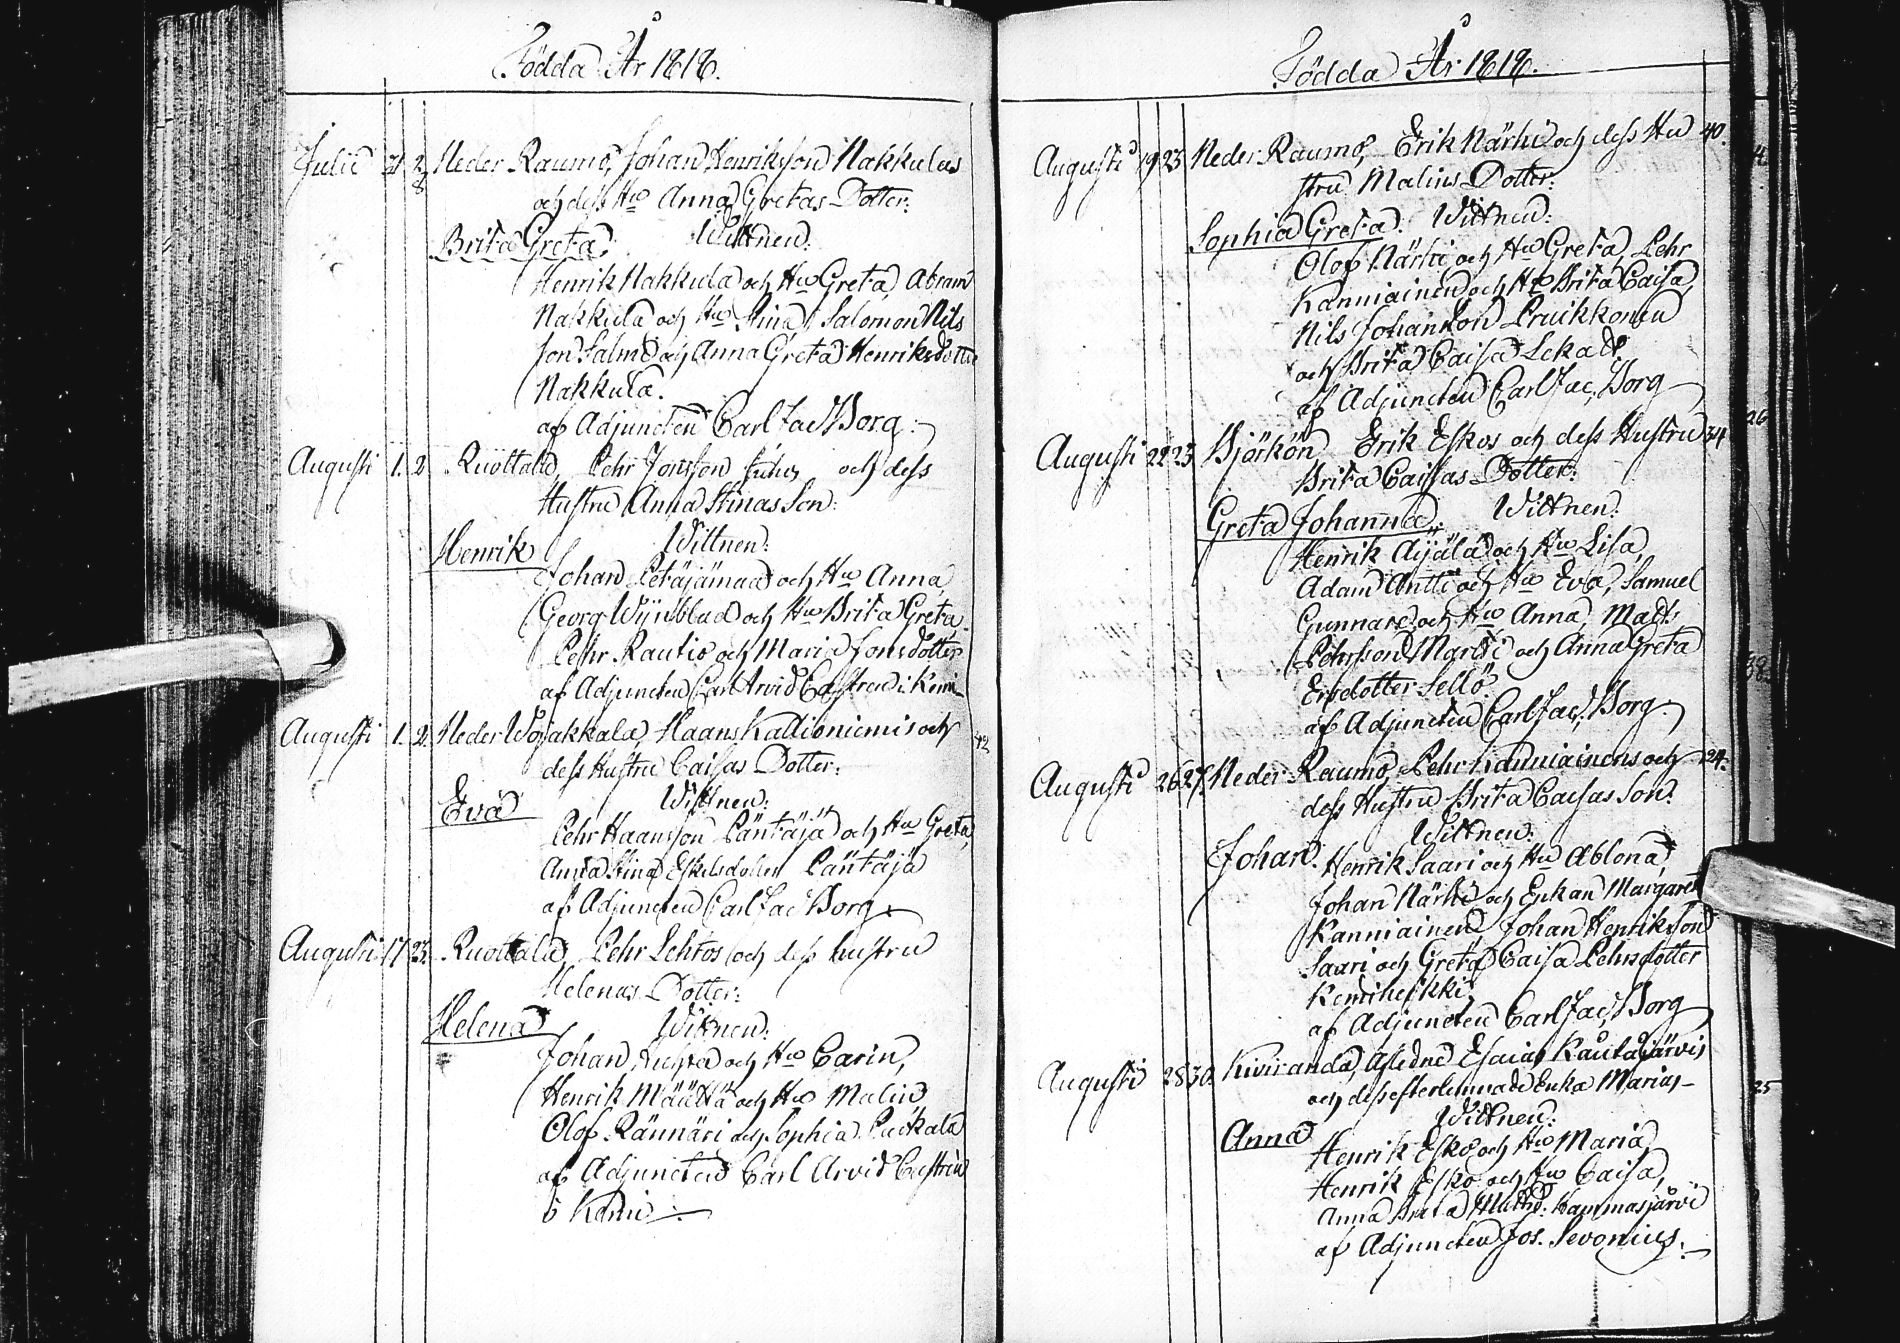 Födda År 1818.
Julii 21 28 Neder Raumo, Johan Henriksson Nakkulas
och dess Hu Anna Gretas Dotter:
Brita Greta. Wittnen:
Henrik Nakkula och Hu Greta, Abram
Nakkula och Hu Stina, Salomon Nils
son Salmo och Anna Greta Henriksdotter
Nakkula.
af Adjuncten Carl Jac Borg.
Augusti 1. 2 Ruottala, Pehr Jonsson och dess
Hustru Anna Stinas Son.
Henrik Wittnen:
Johan Petäjämaa och Hu Anna,
Georg Wijnblad och Hu Brita Greta,
Pehr Rautio och Maria Jonsdotter
af Adjuncten Carl Arvid Castren i Kemi
Augusti 1. 2. Neder Wojakkala, Haans Kallioniemis och 42
dess Hustru Caisas Dotter:
Eva Wittnen:
Pehr Haansson Päntäjä och Hu Greta,
Anna Stina Eskelsdotter Päntäjä
af Adjuncten Carl Jac Borg.
Augusti 17 23. Ruottala, Pehr Lehtos och dess hustru
Helenas Dotter:
Helena Wittnen:
Johan och Hu Carin,
Henrik Määttä och Hu Malin
Olof Rännäri och Sophia
af Adjuncten Carl Arvid Castren
i Kemi.
Födda År 1818.
Augusti 19 23 Neder Raumo, Erik Närhi och dess Hu 40.
stru Malins Dotter:
Sophia Greta. Wittnen:
Olof Närhi och Hu Greta, Pehr
Kanniainen och Hu Brita Caisa,
Nils Johansson Pruikkonen
och Brita Caisa
af Adjuncten Carl Jac. Borg
Augusti 22 23 Björkön, Erik Eskos och dess Hustru 34
Brita Caisas Dotter:
Greta Johanna. Wittnen:
Henrik Äijälä och Hu Lisa,
Adam Antti och Hu Eva, Samuel
Gunnare och Hu Anna, Matts
Pehrsson Martti och Anna Greta
Ersdotter Sellö.
af Adjuncten Carl Jac. Borg.
Augusti 26 27. Neder Raumo, Pehr Kanniainens och 24.
dess Hustru Brita Caisas Son.
Wittnen:
Johan. Henrik Saari och Hu Ablona,
Johan Närhi och Enkan Margareta
Kanniainen, Johan Henriksson
Saari och Greta Caisa Pehrsdotter
Kemiheikki,
af Adjuncten Carl Jac. Borg
Augusti 28 30. Kiviranda, Afledne Esaias Rautajärvis
och dess efterlemnade Enka Marias
Wittnen:
Anna Henrik Esko och Hu Maria,
Henrik Esko och Hu Caisa,
Anna Brita Mattsd. Kammasjärvi
af Adjuncten Jos. Sevonius.
26
38
25